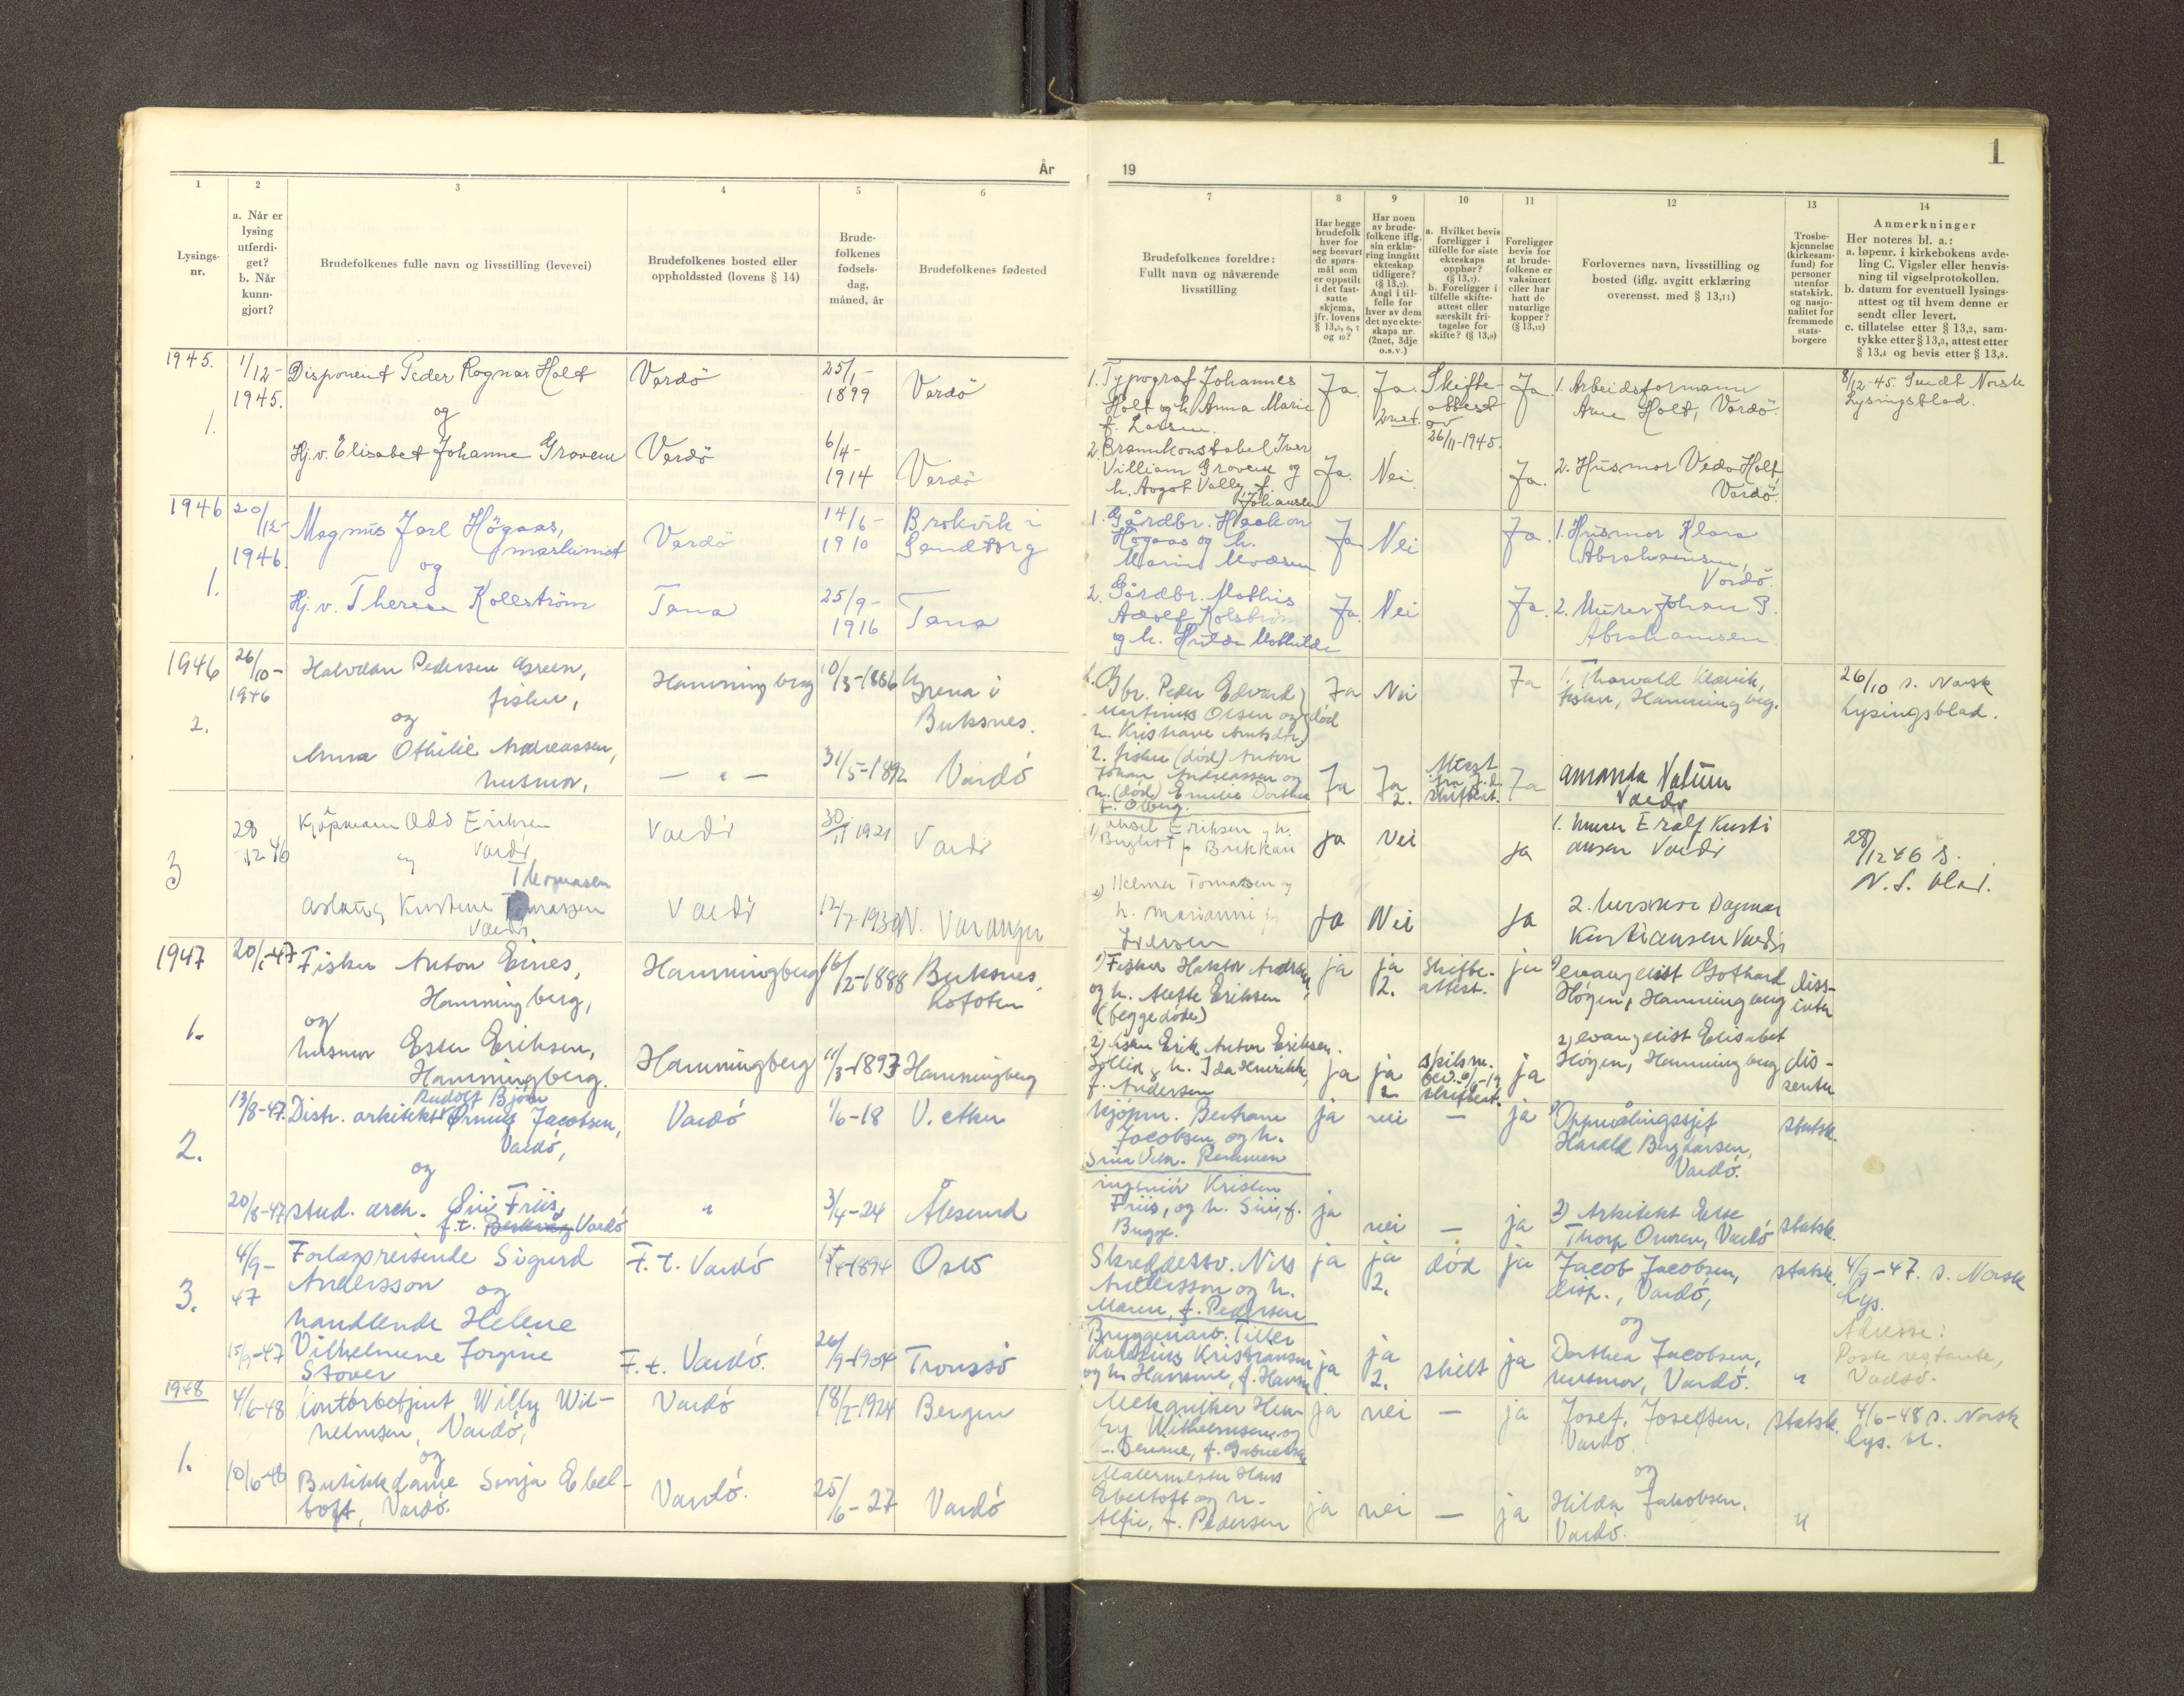 År
1
2
3
4
5
6
Lysings-
nr.
a. Når er
lysing
utferdi-
get?
b. Når
kunn-
gjort?
Brudefolkenes fulle navn og livsstilling (levevei)
Brudefolkenes bosted eller
oppholdssted (lovens § 14)
Brude-
folkenes
fødsels-
dag,
måned, år
Brudefolkenes fødested
1945.
1.
1/12-
1945.
Disponent Peder Ragnar Holt
og
Hj.v. Elisabet Johanne Gravem
Vardö
Vardö
25/1-
1899
6/4-
1914
Vardö
Vardö
1946
1.
20/12-
1946.
Magnus Jarl Högaas,
maskinist
og
Hj. v. Therese Kollström
Vardö
Tana
14/6-
1910
25/9-
1916
Brokvik i
Sandtorg
Tana
1946
2.
26/10-
1946
Halvdan Pedersen Green,
fisker,
og
Anna Othilie Andreassen,
husmor,
Hamningberg
— " —
10/3-1886
31/5-1892
Grena i
Buksnes.
Vardö
3
28
12 46
Kjöpmann Odd Eriksen
Vardö
og
Thomasen
Aslaug Kirstine
Vardö
Vardö
Vardö
30/11 1921
12/7-1930
Vardö
N. Varanger
1947
1.
20/1-47
Fisker Anton Eines,
Hamningberg,
og
husmor Ester Eriksen,
Hamningberg.
Hamningberg
Hamningberg
16/2-1888
11/3-1893
Buksnes,
Lofoten
Hamningberg
2.
13/8-47.
20/8-47
Rudolf Bjørn
Distr. arkitekt Ørnulf Jacobsen,
Vardö,
og
stud. arch. Siri Friis,
f.t. Vardö
Vardö
"
1/6-18
3/4-24
V. etken
Ålesund
3.
4/9-
47
15/9-47
Forlagsreisende Sigurd
Andersson
og
handlende Helene
Vilhelmine Jorgine
Stover
F. t. Vardö
F. t. Vardö.
-1894
26/9-1904
Oslo
Tromsö
1948
1.
4/6-48
10/6-48
Kontorbetjent Willy Wil-
helmsen, Vardö,
og
Butikkdame Sonja Ebel-
toft, Vardö.
Vardö
Vardö.
18/2-1924
25/6-27
Bergen
Vardö
19
1
7
8
9
10
11
12
13
14
Brudefolkenes foreldre:
Fullt navn og nåværende
livsstilling
Har begge
brudefolk
hver for
seg besvart
de spørs-
mål som
er oppstilt
i det fast-
satte
skjema,
jfr. lovens
§ 13,5, 6, 7
og 10?
Har noen
av brude-
folkene iflg.
sin erklæ-
ring inngått
ekteskap
tidligere?
(§ 13,7).
Angi i til-
felle for
hver av dem
det nye ekte-
skaps nr.
(2net, 3dje
o.s.v.)
a. Hvilket bevis
foreligger i
tilfelle for siste
ekteskaps
opphør?
(§ 13,7).
b. Foreligger i
tilfelle skifte-
attest eller
særskilt fri-
tagelse for
skifte? (§ 13,9)
Foreligger
bevis for
at brude-
folkene er
vaksinert
eller har
hatt de
naturlige
kopper?
(§ 13,12)
Forlovernes navn, livsstilling og
bosted (iflg. avgitt erklæring
overensst. med § 13,11)
Trosbe-
kjennelse
(kirkesam-
fund) for
personer
utenfor
statskirk.
og nasjo-
nalitet for
fremmede
stats-
borgere
Anmerkninger
Her noteres bl. a.:
a. løpenr. i kirkebokens avde-
ling C. Vigsler eller henvis-
ning til vigselprotokollen.
b. datum for eventuell lysings-
attest og til hvem denne er
sendt eller levert.
c. tillatelse etter § 13,2, sam-
tykke etter § 13,3, attest etter
§ 13,4 og bevis etter § 13,8.
1. Typograf Johannes
Holt og h. Anna Marie
f. Larsen.
Ja.
Ja.
2net.
Skifte-
attest
av
26/11-1945.
Ja.
1. Arbeidsformann
Arne Holt, Vardö.
8/12-45. Sendt Norsk
Lysingsblad.
2. Brannkonstabel Iver
Villiam Gravem og
h. Aagot Vally f.
Johansen
Ja.
Nei
Ja.
2. Husmor Veda Holt,
Vardö.
1. Gårdbr. Haakon
Högaas og h.
Marie
Ja
Nei
Ja.
1. Husmor Klara
Abrahamsen,
Vardö.
2. Gårdbr. Mathis
Adolf Kolström
og h. Hulda Mathilde
Ja.
Nei
Ja.
2. Murer Johan P.
Abrahamsen
1. Gbr. Peder Edvard
Martinus Olsen og død
h. Kristiane
Ja
Nei
Ja
1. Thorvald Klævik,
fisker, Hamningberg.
26/10 s. Norsk
Lysingsblad.
2. fisker (død) Anton
Johan Andreassen og
h. (død) Emelie Dorthea
f. Olberg.
Ja
Ja
2.
Attest
fra
skifteret.
Ja
Amanda
Vardö
1) Aksel Eriksen og h.
Birgit f. Brekkan
Ja
Nei
Ja
1. Murer Kristi
ansen Vardö
28/12 46 s.
N. L. blad.
2) Helmer Tomassen og
h. Marianne f.
Iversen
Ja
Nei
Ja
2. husmor Dagmar
Kristiansen Vardö
1) Fisker Haktor Andersen,
og h. Alette Eriksen
(begge døde)
ja
ja
2.
Skifte-
attest.
ja
1) evangelist Gothard
Högen, Hamningberg
diss-
enter
2) fisker Erik Anton Eriksen
og h. Ida Henrikke,
f. Andersen
ja
ja
2
Skilsm.
bev.
skifteatt.
ja
2) evangelist Elisabet
Högen, Hamningberg
dis-
senter
Kjöpm. Bertram
Jacobsen og h.
ja
nei
—
ja
1) Oppmålingssjef
Harald Brynlarsen,
Vardö.
statsk.
ingeniör Kristen
Friis, og h. Siri, f.
Bugge.
ja
nei
—
ja
2) Arkitekt Else
Thorp Onren, Vardö
statsk.
Skreddersv. Nils
Andersson og h.
Maren, f. Pedersen
ja
ja
2.
död
ja
Jacob Jacobsen,
disp., Vardö,
og
statsk.
4/9-47. s. Norsk
Lys.
Adresse:
Poste restante,
Vadsö.
Bryggeriarb. Peter
Kristiansen
og h. Hansine, f. Hansen
ja
ja
2.
skilt
ja
Dorthea Jacobsen,
husmor, Vardö.
"
Mekaniker Hen-
ry Wilhelmsen og
ja
nei
—
ja
Josef Josefsen,
Vardö.
og
statsk.
4/6-48 s. Norsk
lys. bl.
Malermester Hans
Ebeltoft og h.
Alfie, f. Pedersen
ja
nei
—
ja
Hilda Jakobsen,
Vardö.
"